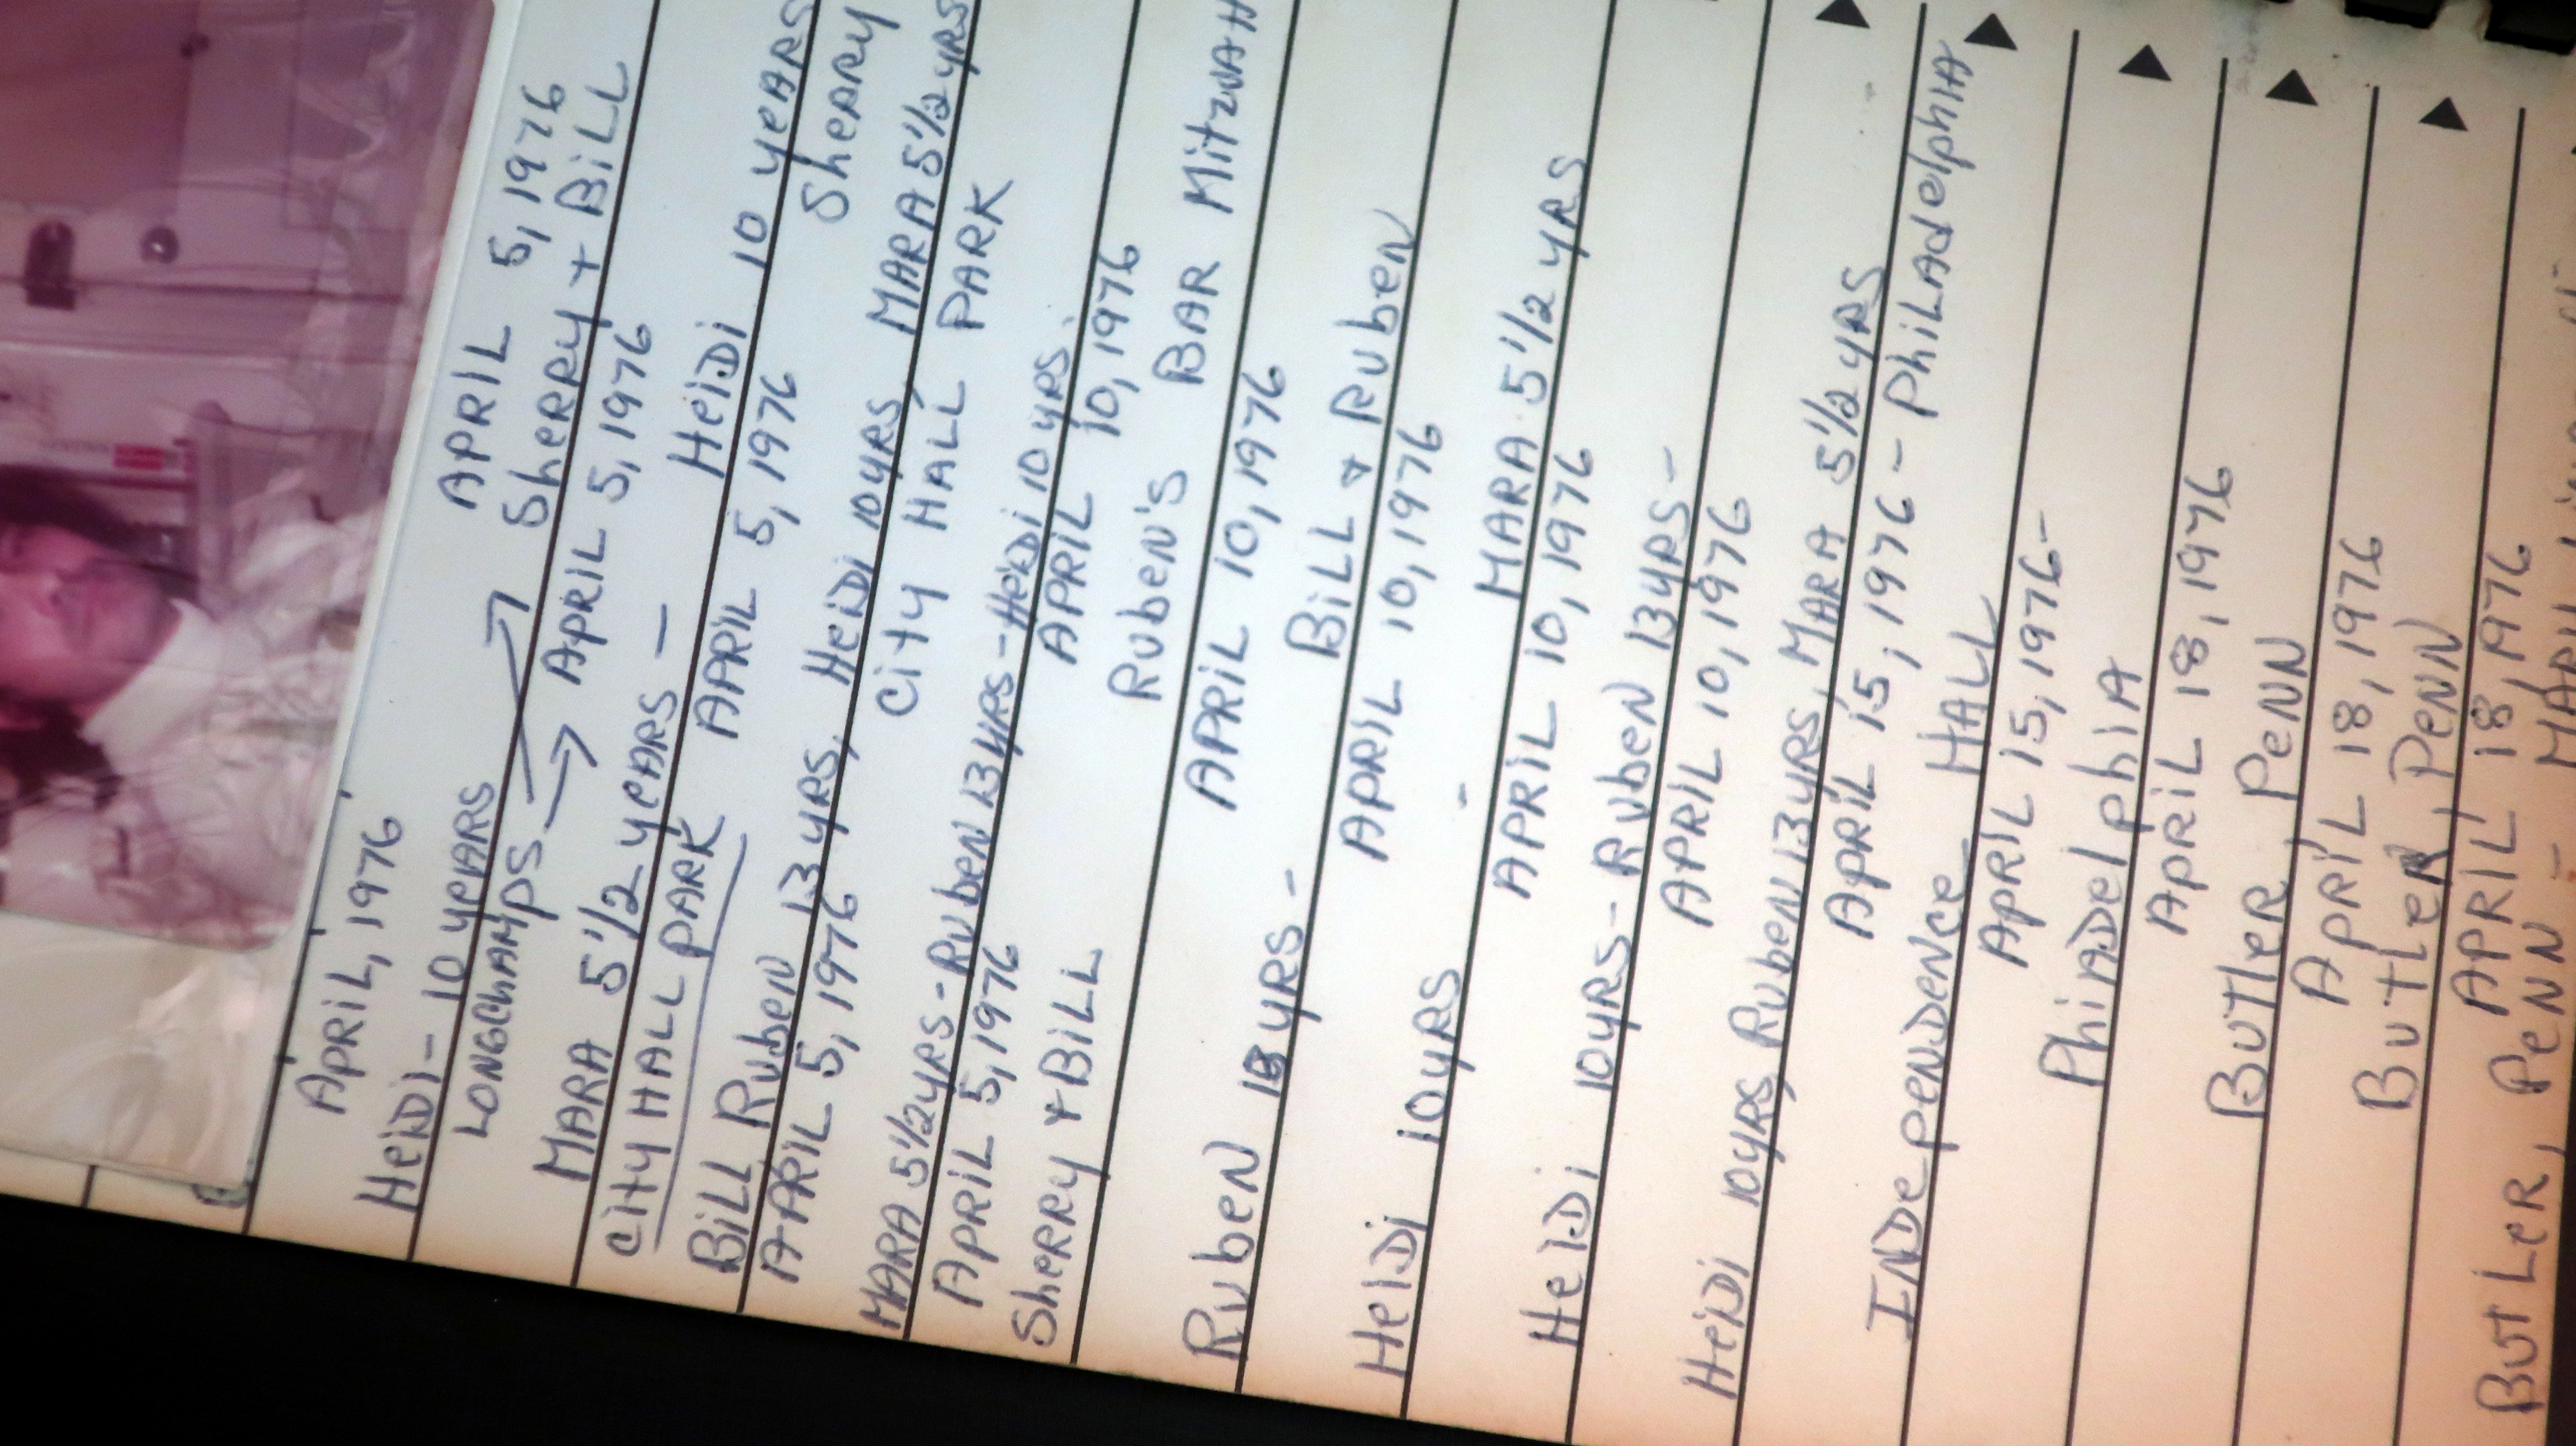 APRIL, 1976
HEIDI - 10 YEARS APRIL 5, 1976
LONGCHAMPS → Sherry + BILL
→ APRIL 5, 1976
MARA 5 1/2 YEARS -
CITY HALL PARK HEIDI 10 YEARS
APRIL 5, 1976
BILL Ruben 13 YRS, HEIDI 10 YRS, MARA 5 1/2 YRS Sherry
APRIL 5, 1976 CITY HALL PARK
MARA 5 1/2 YRS - Ruben 13 YRS - HEIDI 10 YRS.
APRIL 5, 1976 APRIL 10, 1976
Sherry + BILL Ruben's BAR MITZVAH
APRIL 10, 1976
Ruben 13 YRS - BILL + Ruben
APRIL 10, 1976
HEIDI 10 YRS - MARA 5 1/2 YRS
APRIL 10, 1976
HEIDI 10 YRS - Ruben 13 YRS -
APRIL 10, 1976
HEIDI 10 YRS, Ruben 13 YRS, MARA 5 1/2 YRS
APRIL 15, 1976 - PHILADELPHIA
INDEPENDENCE HALL
APRIL 15, 1976 -
PhilADelphiA
APRIL 18, 1976
BUTLER, PENN
APRIL 18, 1976
BUTLER, PENN
APRIL 18, 1976
BUTLER, PENN -